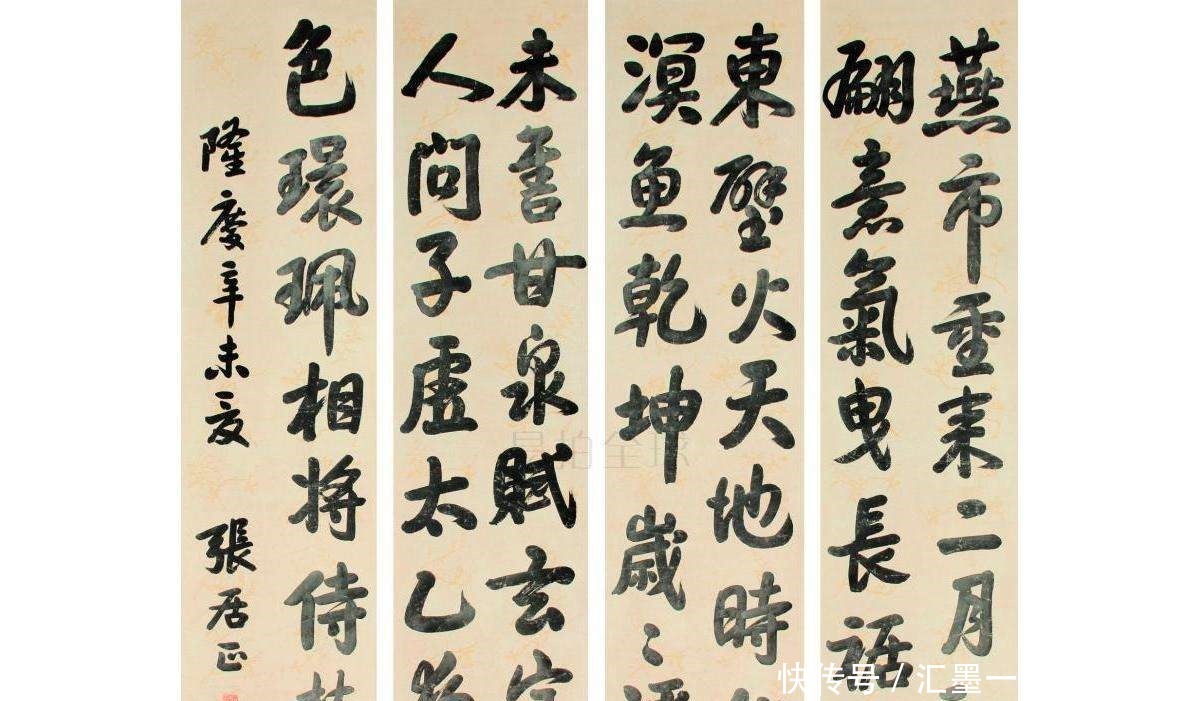 燕市重来二月
翩意氣曳長裾
東壁火天地時
溟魚乾坤歲〻
未售甘泉賦玄
人問子虛太乙
色環珮相將侍
隆慶辛未夏 張居正
快传号 / 汇墨一